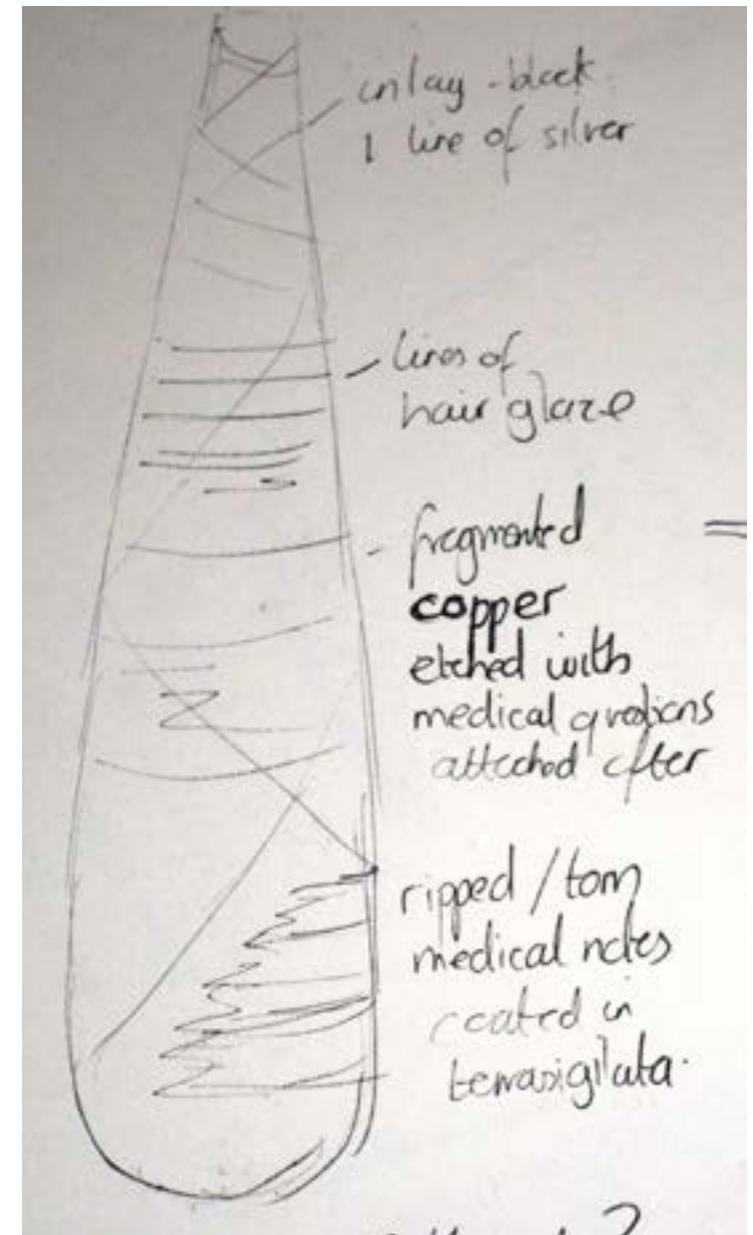 inlay - black
1 line of silver
lines of
hair glaze
fragmented
copper
etched with
medical
attached after
ripped / torn
medical notes
coated in
terrasigilata.
?